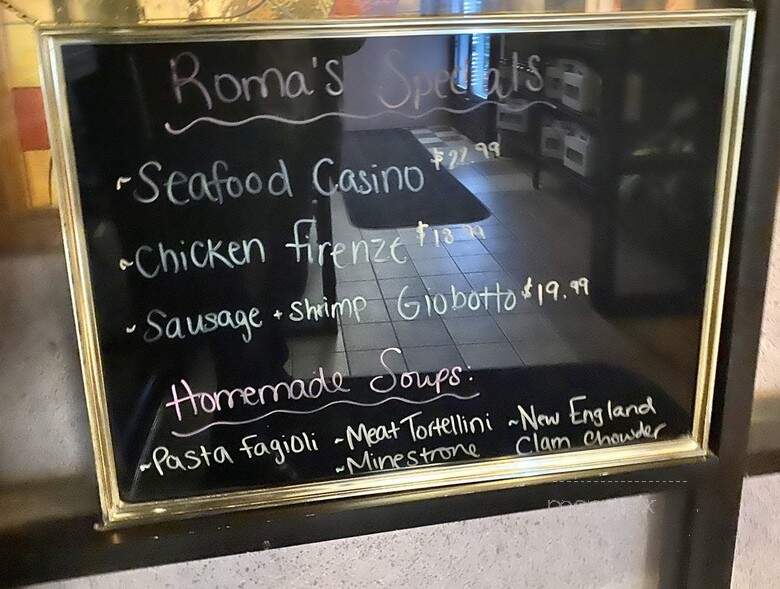 Roma's Specials
~Seafood Casino $27.99
~Chicken firenze $18.99
~Sausage + Shrimp Giobotto $19.99
Homemade Soups:
~Pasta fagioli ~Meat Tortellini ~New England
~Minestrone Clam Chowder